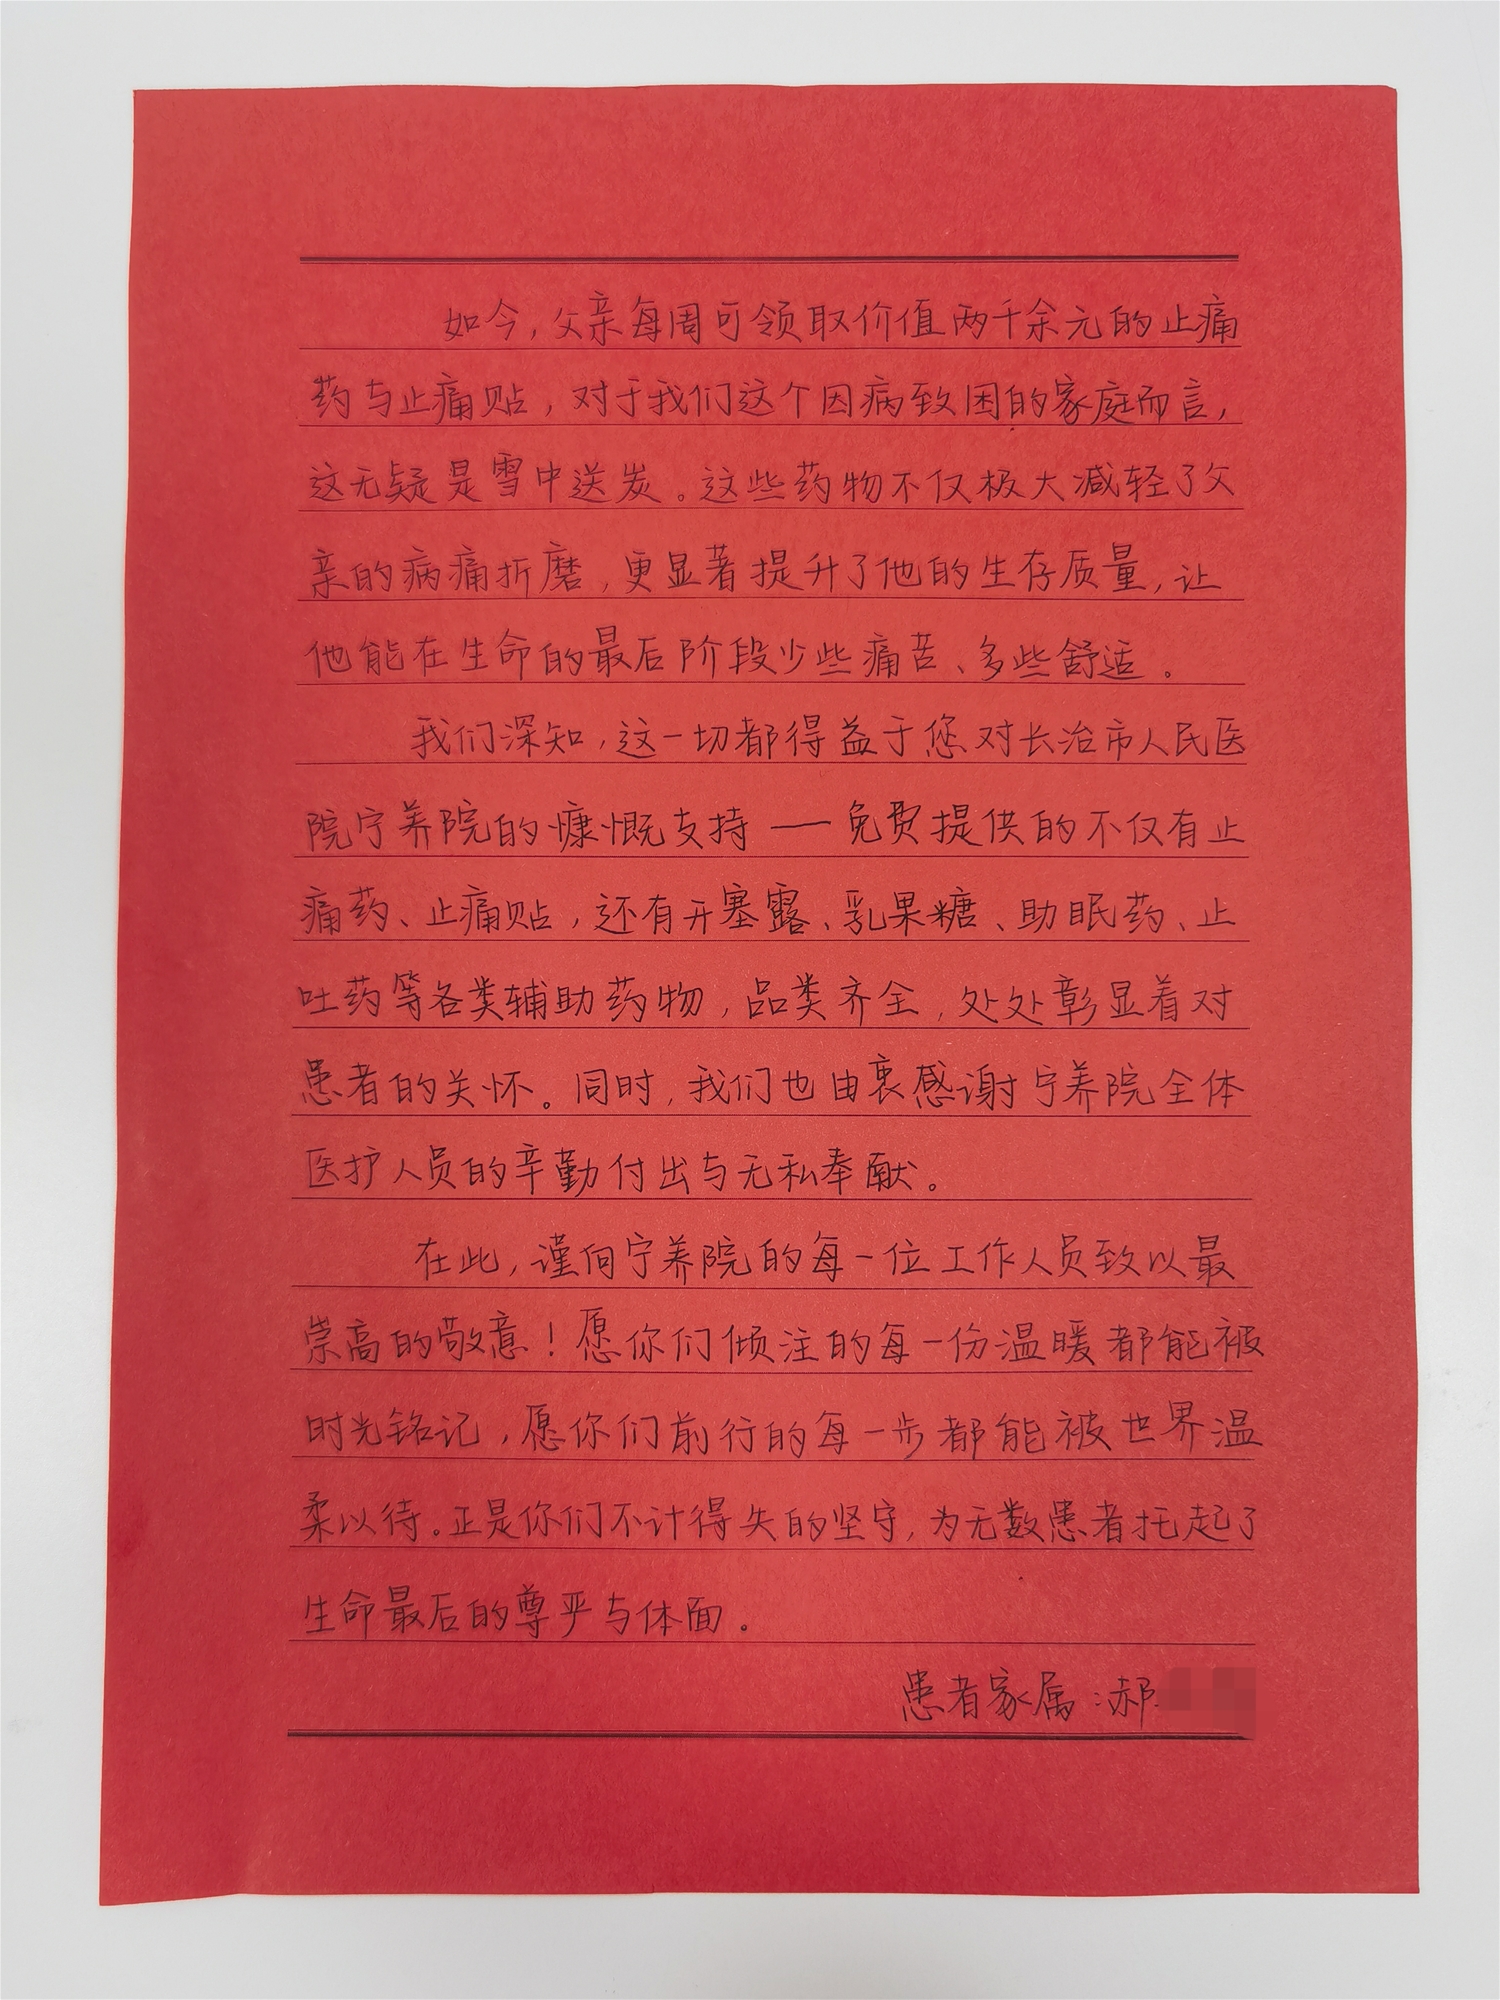 如今，父亲每周可领取价值两千余元的止痛
药与止痛贴，对于我们这个因病致困的家庭而言，
这无疑是雪中送炭。这些药物不仅极大减轻了父
亲的病痛折磨，更显著提升了他的生存质量，让
他能在生命的最后阶段少些痛苦、多些舒适。
我们深知，这一切都得益于您对长治市人民医
院宁养院的慷慨支持——免费提供的不仅有止
痛药、止痛贴，还有开塞露、乳果糖、助眠药、止
吐药等各类辅助药物，品类齐全，处处彰显着对
患者的关怀。同时，我们也由衷感谢宁养院全体
医护人员的辛勤付出与无私奉献。
在此，谨向宁养院的每一位工作人员致以最
崇高的敬意！愿你们倾注的每一份温暖都能被
时光铭记，愿你们前行的每一步都能被世界温
柔以待。正是你们不计得失的坚守，为无数患者托起了
生命最后的尊严与体面。
患者家属：郝